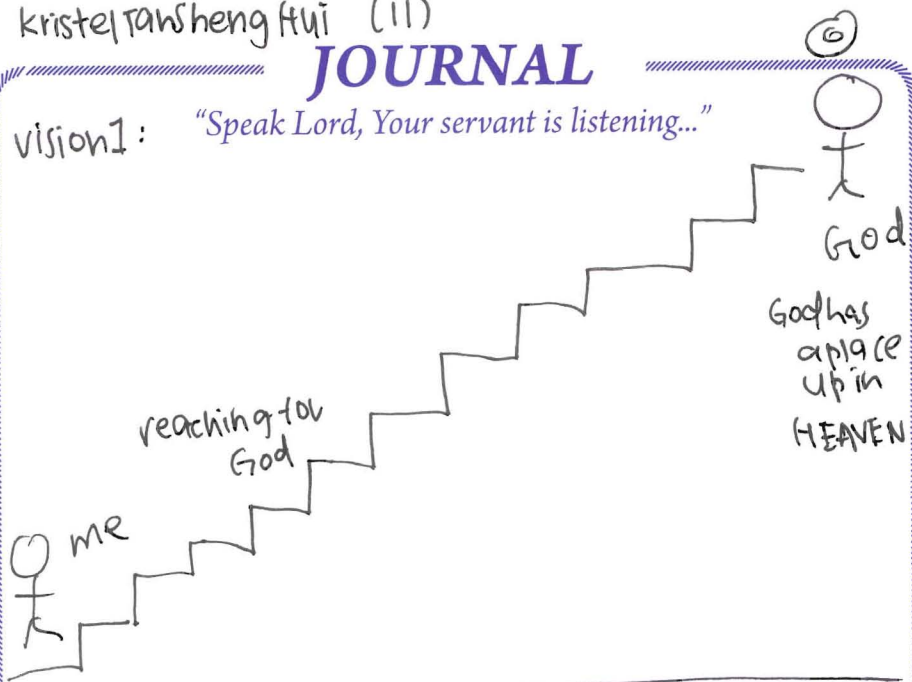 Kristel Tan Sheng Hui (11)
6
JOURNAL
"Speak Lord, Your servant is listening..."
vision1:
God
God has
a place
up in
HEAVEN
reaching for
God
me